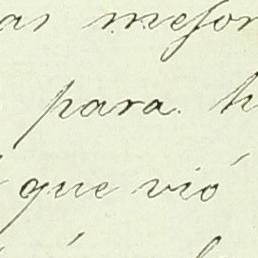 as mejor
para h
que vió